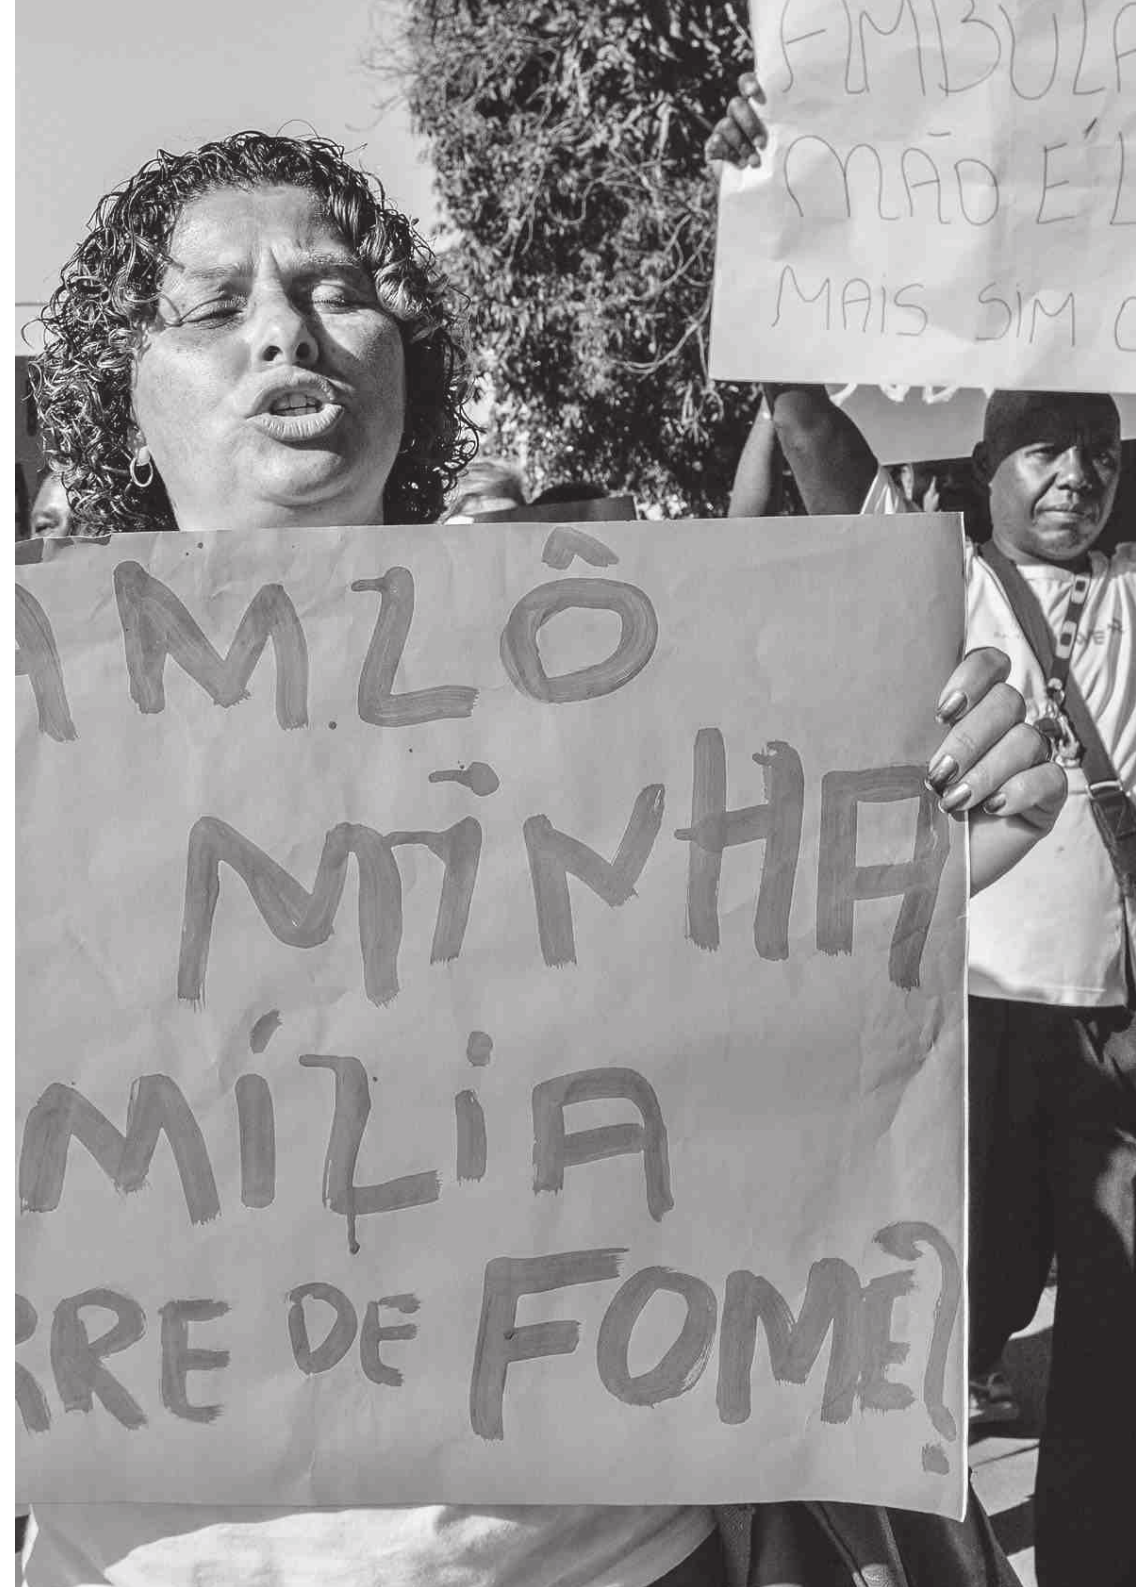 AMBULA
NÃO É L
MAIS SIM
AMLÔ
MINHA
MÍLIA
RRE DE FOME?